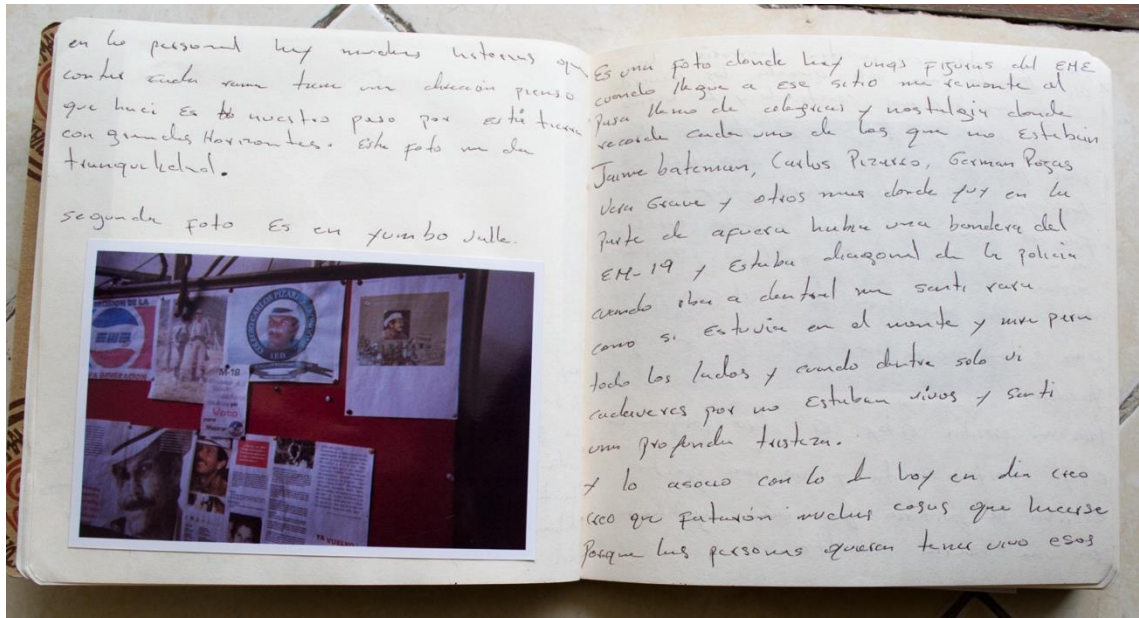 en lo personal hay muchas historias que
contar cada rama tiene una dirección pienso
que haci Es nuestro paso por esta tierra
con grandes Horizontes. Esta foto me da
tranquilidad.
segunda foto Es en yumbo valle.
M-19
Voto
YA VUELVO
Es una foto donde hay unas figuras del EME
cuando llegue a ese sitio me remonte al
Pasa lleno de alegrias y nostalgia donde
recorde cada uno de los que no Estaban
Jaime bateman, Carlos Pizarro, German Rojas
Vera Grave y otros mas donde fuy en la
Parte de afuera habia una bandera del
EM-19 y Estaba diagonal de la policia
cuando iba a dentral me senti rara
como si Estuviera en el monte y mire para
todo los lados y cuando dentre solo vi
cadaveres por no Estaban vivos y senti
una profunda tristeza.
y lo asocio con lo d hoy en dia creo
creo que fataron muchas cosas que hacerse
Porque las personas quieren tener vivo esos